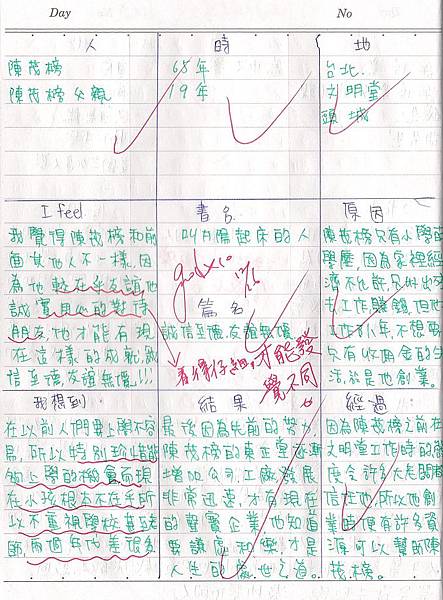 Day
No
人
時
地
陳茂榜
68年
台北
陳茂榜父親
19年
文明堂
頭城
I feel
書名
原因
我覺得陳茂榜和前
面其他人不一樣,因
朋友,他才能有現
在這樣的成就,誠
信至德,友誼無價!!!
叫太陽起床的人
good x10
篇名
誠信至德,友誼無價
看得仔細,才能發
覺不同。
陳茂榜只有小學的
學歷,因為家裡經
濟不允許,只好出外
去工作賺錢,但他
只有收佣金的生
活,於是他創業。
我想到
結果
經過
在以前人們要上學不容
易,所以特別珍惜能
夠上學的機會而現
在小孩根本不在乎所
以不重視學校甚至老
師,兩個年代差很多
最後因為先前的努力
陳茂榜的東正堂逐漸
增加公司,工廠,發展
非常迅速,才有現在
的聲寶企業他知道
要謙虛和樂,才是
人生的處世之道。
因為陳茂榜之前在
文明堂工作時的態
度令許多大老闆都
信任他,所以他創
業時便有許多資
源可以幫助陳
茂榜。